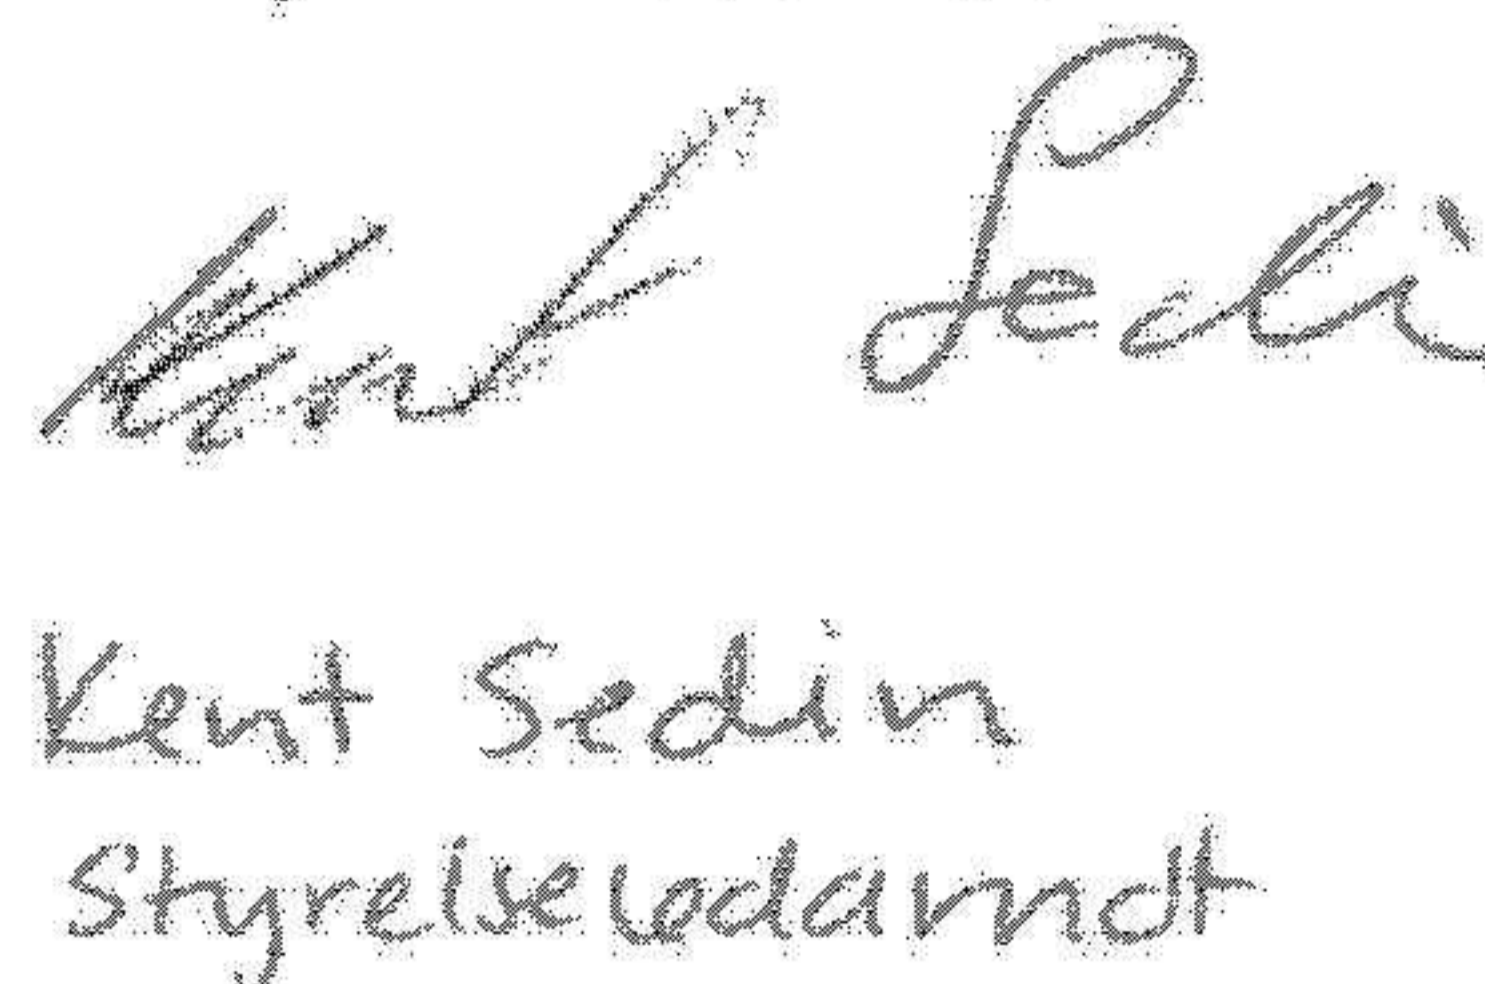 Kent Sedi
Kent Sedin
Styrelseledamot